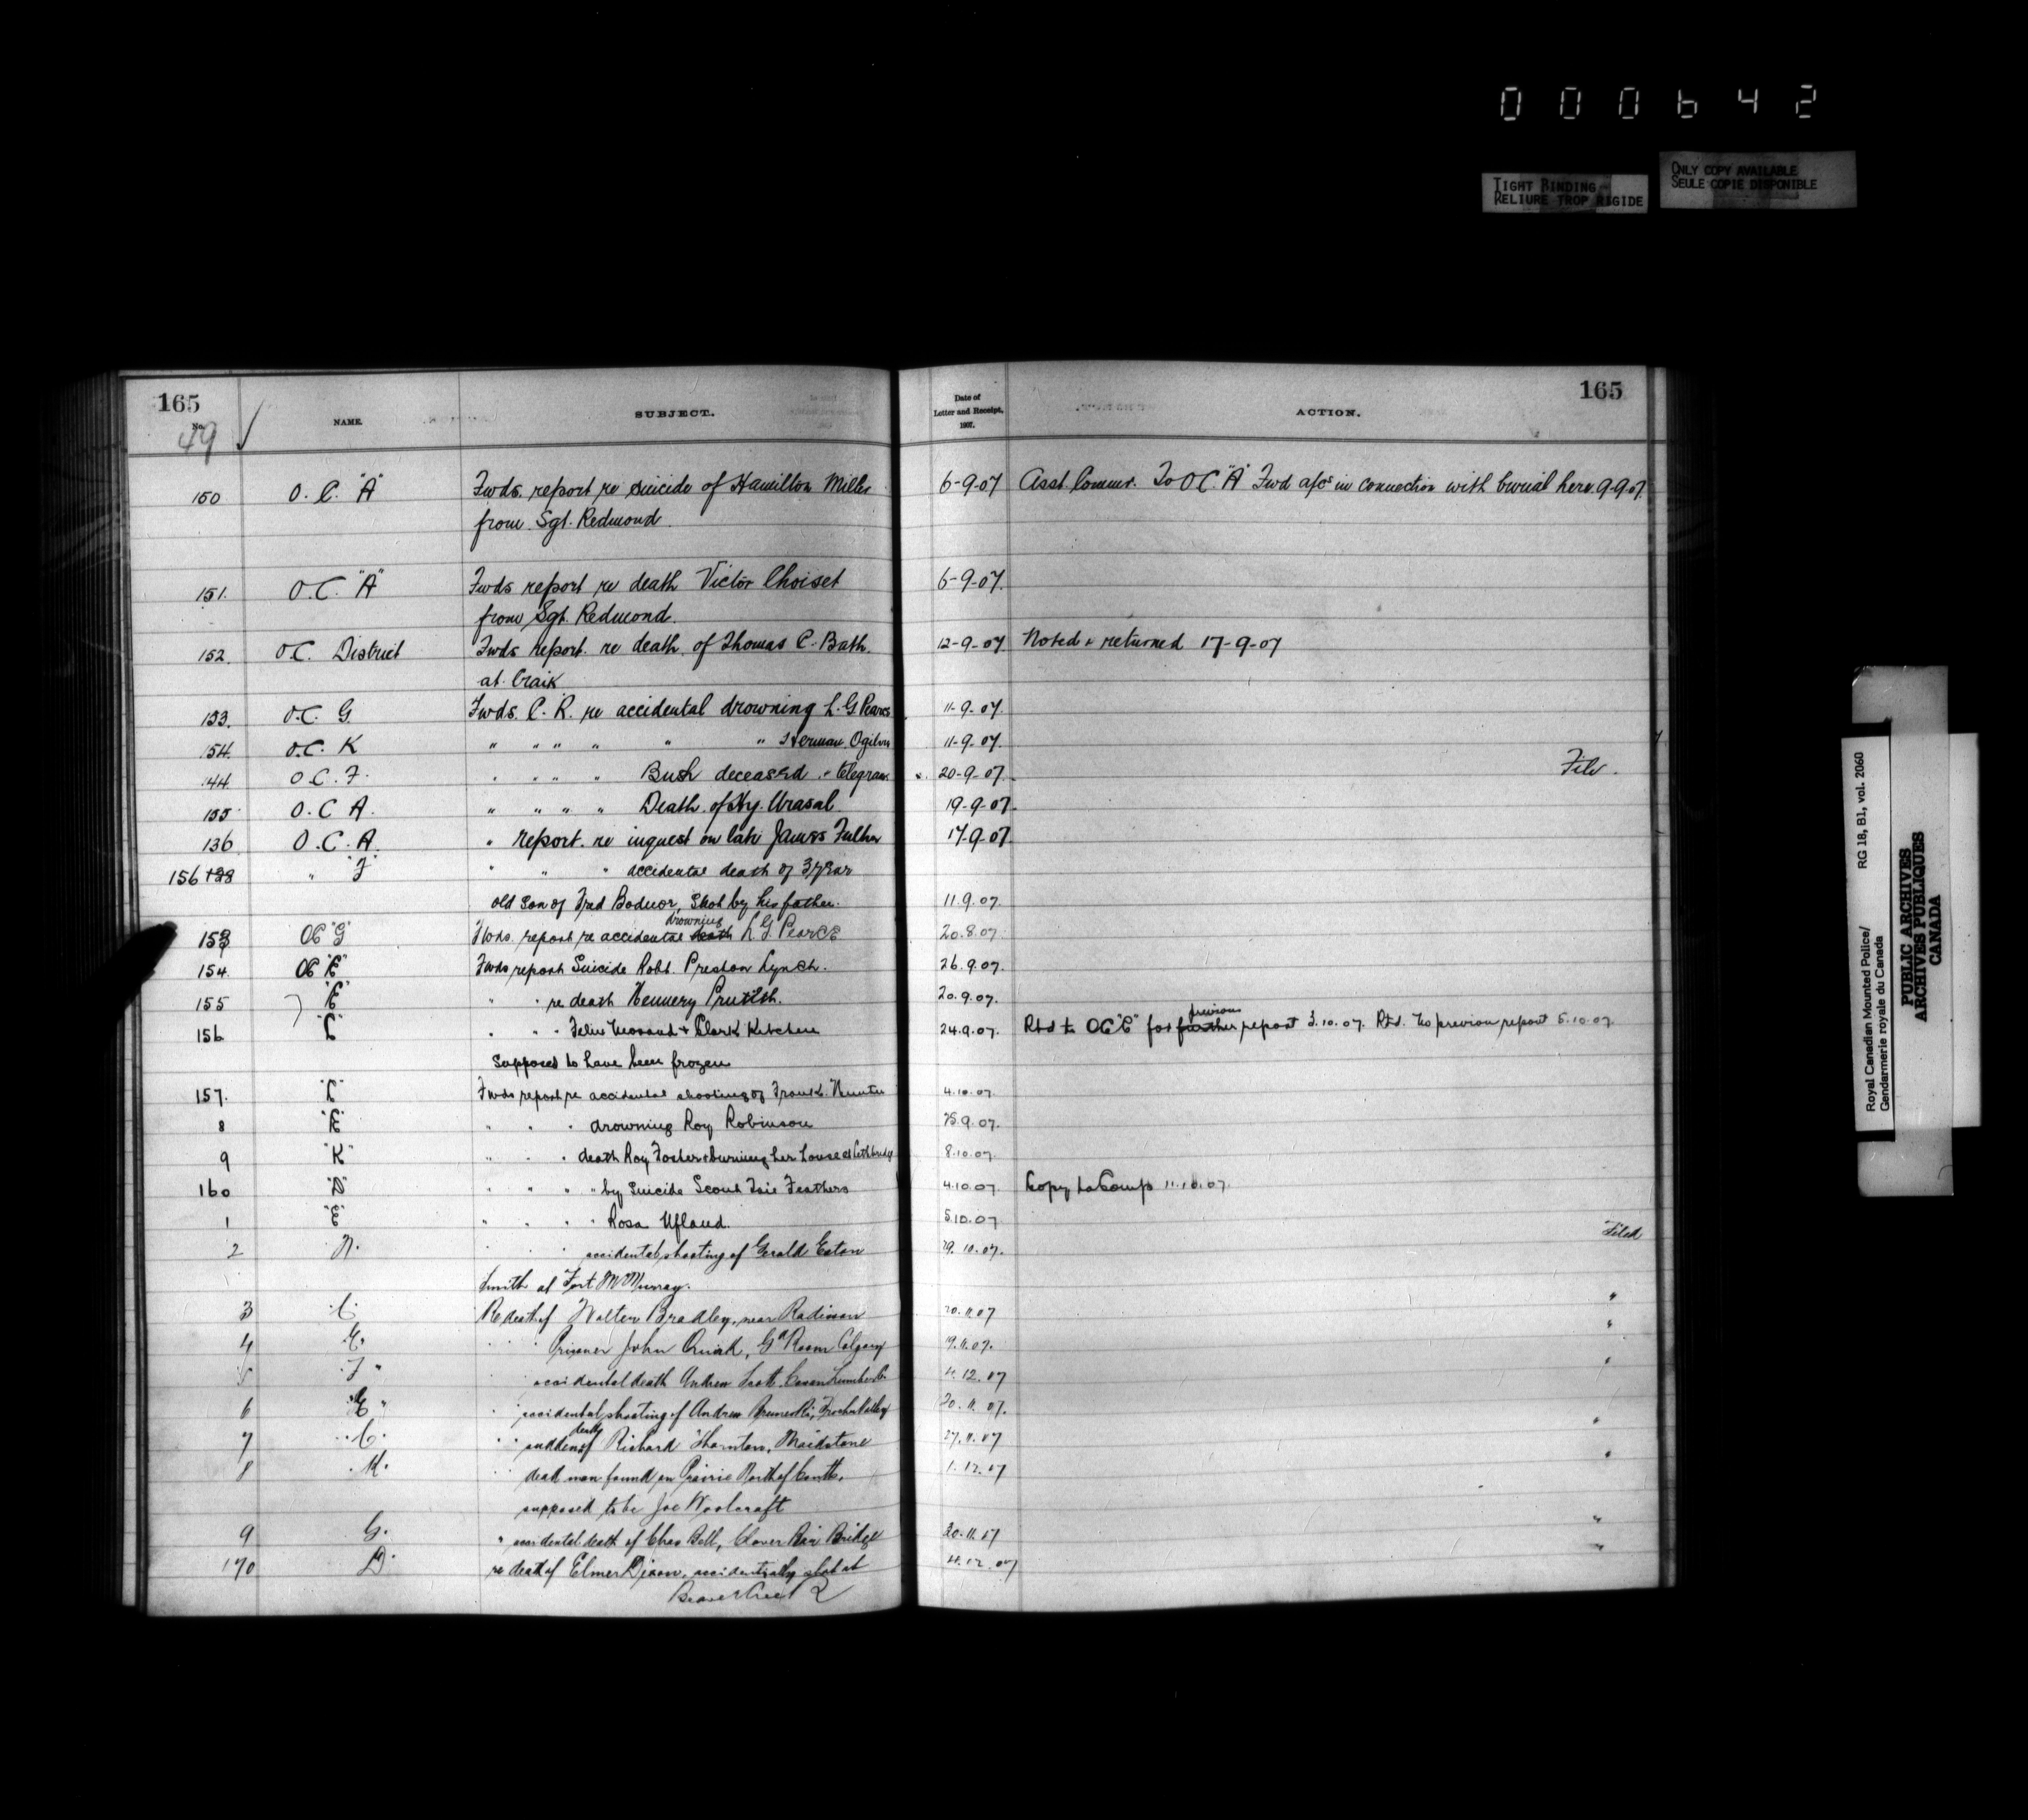 000642
TIGHT BINDING
RELIURE TROP RIGIDE
ONLY COPY AVAILABLE
SEULE COPIE DISPONIBLE
165
No.
49 √
NAME.
SUBJECT.
Date of
Letter and Receipt,
1907.
ACTION.
165
150 O.C. "A" Fwds. report re suicide of Hamilton Miller 6-9-07 Asst. Commr. To O.C. "A" Fwd a/cs in connection with burial here 9-9-07.
from Sgt. Redmond.
151. O.C. "A" Fwds report re death Victor Choiset 6-9-07.
from Sgt. Redmond.
152. O.C. District Fwds report. re death of Thomas C. Bath. 12-9-07 Noted & returned 17-9-07
at Craik
153. O.C. G. Fwds. C.R. re accidental drowning L.G. Pearce 11-9-07.
154. O.C. K " " " " " " Herman Ogilvie 11-9-07.
144. O.C. F. " " " " Bush deceased & telegram. 20-9-07. File.
155 O.C A. " " " " Death of Hy. Urasal 19-9-07.
136 O.C.A. " report. re inquest on late James Fulher 17-9-07.
156 128 " "F" " " " accidental death of 3 year
old son of Fred Boduor, Shot by his father. 11.9.07.
153 OC "G" Fwds. report re accidental death drowning L G Pearce 20.8.07.
154. OC "E" Fwds report Suicide Robt. Preston Lynch. 26.9.07.
155 "E" " " re death Hennery 20.9.07.
156 "C" " " " & Clark Kitchen 24.9.07. Rtd to OC "C" for further previous report 3.10.07. Rtd. No previous report 5.10.07.
Supposed to have been frozen
157. "C" Fwds report re accidental shooting of Frank Hunter 4.10.07.
8 "E" " " " drowning Roy Robinson 25.9.07.
9 "K" " " " death Roy Foster & burning her house at Lethbridge 8.10.07.
160 "D" " " " " by Suicide Scout Feathers 4.10.07 Copy to Comp 11.10.07.
1 "E" " " " " Rosa Ufland. 5.10.07
2 N. " " " accidental shooting of Gerald Eaton 29.10.07. Filed
Smith at Fort McMurray.
3 "C" Re death of Walter Bradley, near Radisson 20.11.07 "
4 "E" " " Prisoner John Quirk, Gd Room Calgary 19.11.07. "
5 "F" " " accidental death Andrew Scott 4.12.07 "
6 "E" " accidental shooting of Andrew 20.11.07.
7 "C" " " sudden death of Richard Thornton, Maidstone 27.11.07 "
8 "K" " " dead man found on Prairie North of Coutts, 1.12.07 "
supposed to be Joe Woolcraft
9 G. " accidental death of Chas Bell, Clover Bar Bridge 30.11.07 "
170 D. re death of Elmer Dixon, accidentally shot at 4.12.07 "
Beaver Creek
Royal Canadian Mounted Police/ RG 18, B1, vol. 2060
Gendarmerie royale du Canada
PUBLIC ARCHIVES
ARCHIVES PUBLIQUES
CANADA